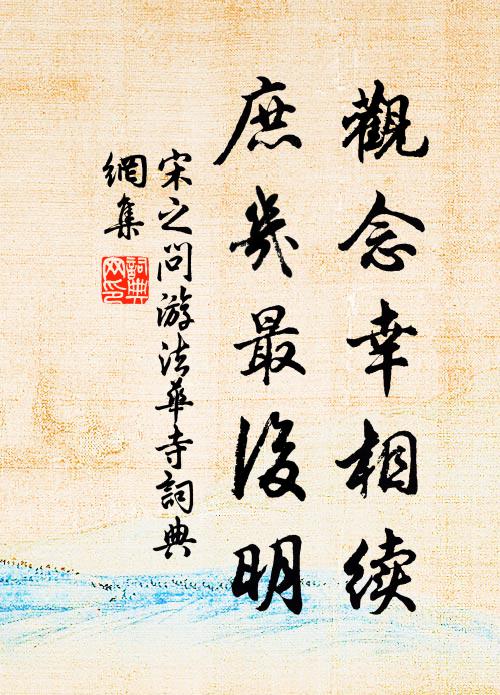 觀念幸相續
庶幾最後明
宋之問游法華寺詞典
網集
詞典
网印